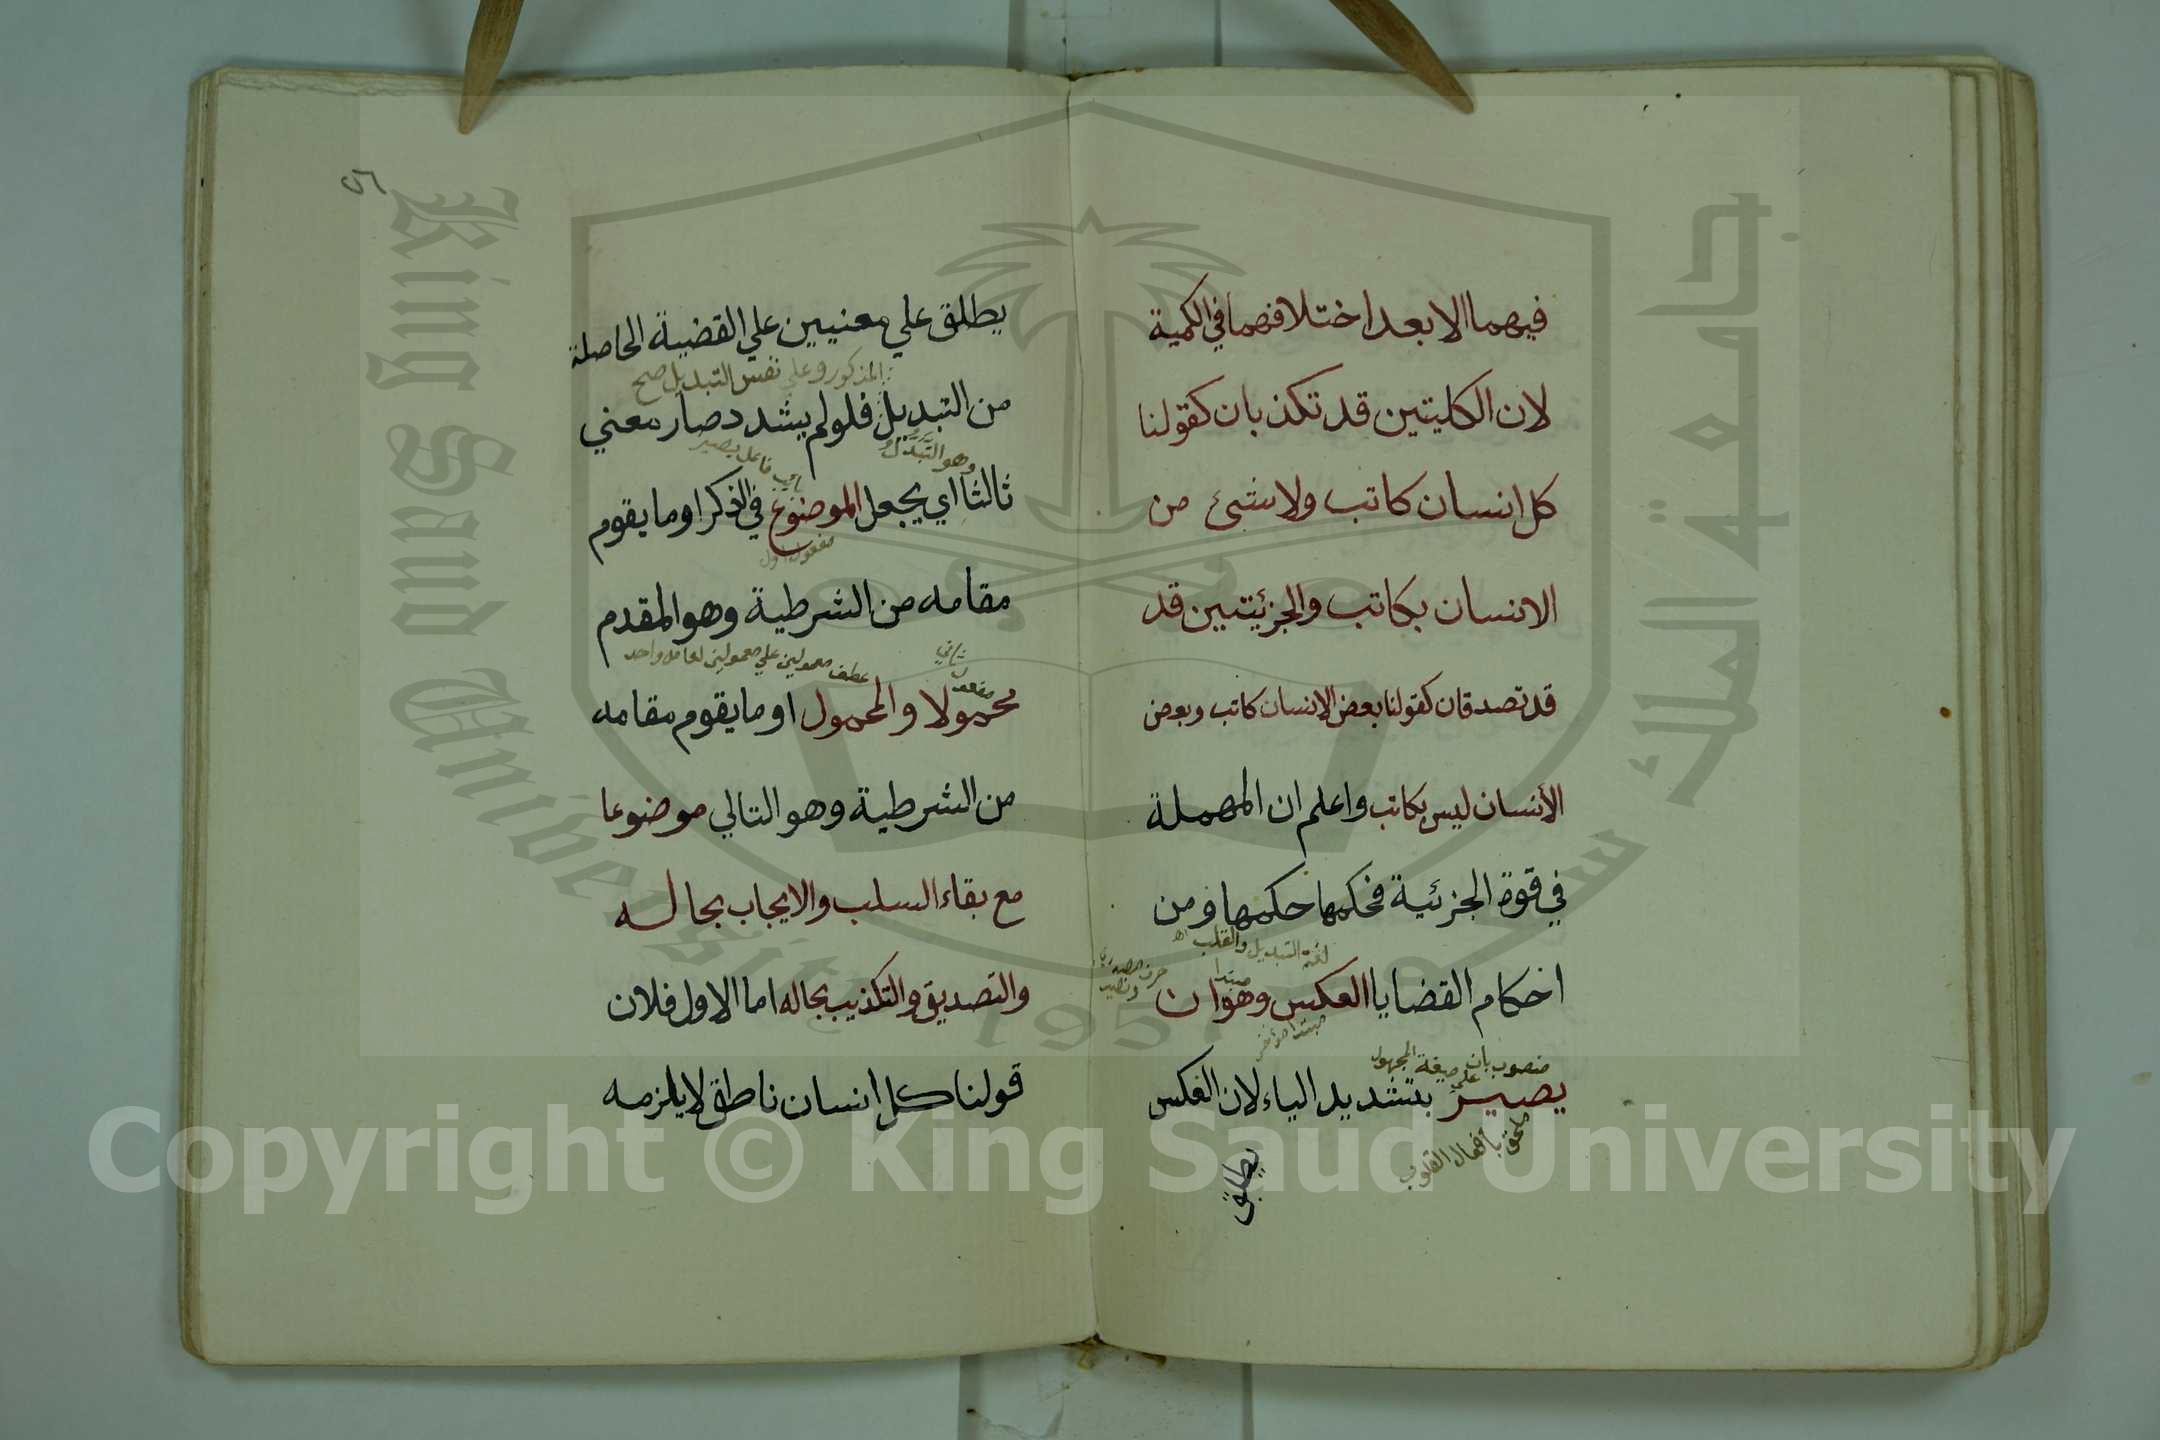 فيهما الا بعد اختلافهما في الكمية
لان الكليتين قد تكذبان كقولنا
كل انسان كاتب ولا شئ من
الانسان بكاتب والجزئيتين قد
قد تصدقان كقولنا بعض الانسان كاتب وبعض
الأنسان ليس بكاتب واعلم ان المهملة
في قوة الجزئية فحكمها حكمها ومن
لغة التبديل والقلب اه
احكام القضايا العكس وهو ان
مبتدا
حرف مصدري ونصب
منصوب بان على صيغة المجهول
يصير بتشديد الياء لان العكس
ملحق بافعال القلوب
يطلق
٥٦
يطلق علي معنيين علي القضية الحاصلة
المذكور وعلي نفس التبديل صح
من التبديل فلولم يشدد صار معني
وهو التبدل
اي فاعل يصير
ثالثا اي يجعل الموضوع في الذكر او ما يقوم
مفعول اول
مقامه من الشرطية وهو المقدم
مفعول ثاني
عطف معمولين علي معمولين لعامل واحد
محمولا والمحمول او ما يقوم مقامه
من الشرطية وهو التالي موضوعا
مع بقاء السلب والايجاب بحاله
والتصديق والتكذيب بحاله اما الاول فلان
قولنا كل انسان ناطق لا يلزمه
King Saud University
جامعة الملك سعود
1957
Copyright © King Saud University